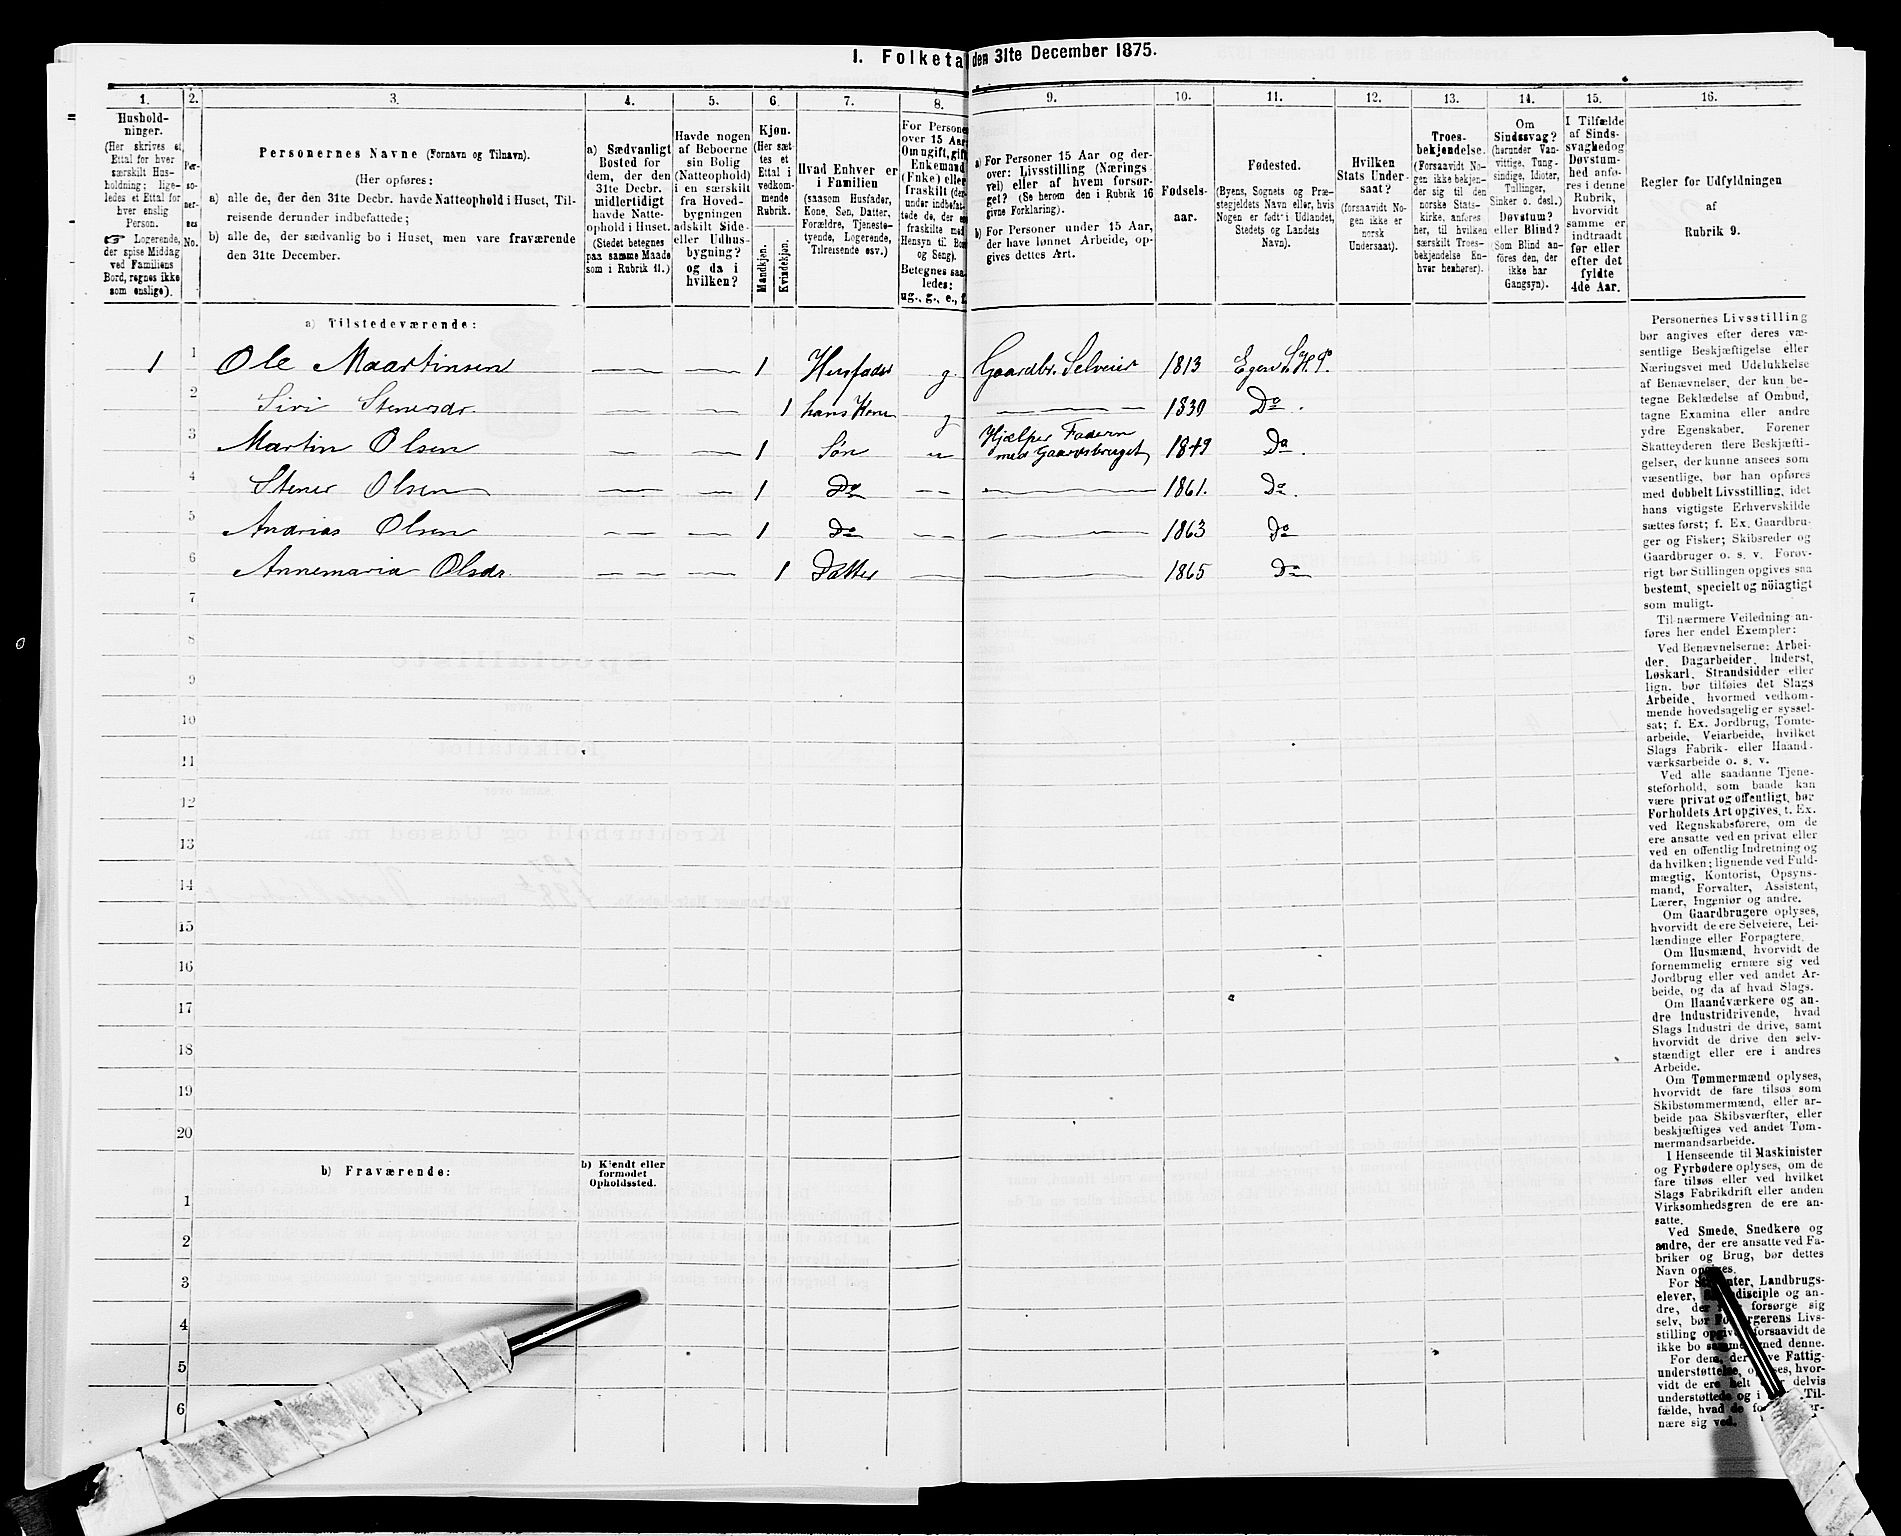 I. Folketa den 31te December 1875.
1. 2. 3. 4. 5. 6. 7. 8. 9. 10. 11. 12. 13. 14. 15. 16.
Hushold-
ninger.
(Her skrives et
Ettal for hver
særskilt Hus-
holdning; lige-
ledes et Ettal for
hver enslig
Person.
☞ Logerende,
der spise Middag
ved Familiens
Bord, regnes ikke
som enslige).
Per-
so-
ner-
nes
No.
Personernes Navne (Fornavn og Tilnavn).
(Her opføres:
a) alle de, der den 31te Decbr. havde Natteophold i Huset, Til-
reisende derunder indbefattede;
b) alle de, der sædvanlig bo i Huset, men vare fraværende
den 31te December.
a) Sædvanligt
Bosted for
dem, der den
31te Decbr.
midlertidigt
havde Natte-
ophold i Huset.
(Stedet betegnes
paa samme Maade
som i Rubrik 11.)
Havde nogen
af Beboerne
sin Bolig
(Natteophold)
i en særskilt
fra Hoved-
bygningen
adskilt Side-
eller Udhus-
bygning?
og da i
hvilken?
Kjøn.
(Her sæt-
tes et
Ettal i
vedkom-
mende
Rubrik.
Mandkjøn.
Kvindekjøn.
Hvad Enhver er
i Familien
(saasom Husfader,
Kone, Søn, Datter,
Forældre, Tjeneste-
tyende, Logerende,
Tilreisende osv.)
For Persone
over 15 Aar
Om ugift, gift
Enkemand
(Enke) eller
fraskilt (der-
under indbefat-
tede de, der e
fraskilte med
Hensyn til Bo
og Seng).
Betegnes saa
ledes:
ug., g., e., f.
a) For Personer 15 Aar og der-
over: Livsstilling (Nærings-
vei) eller af hvem forsør-
get? (Se herom den i Rubrik 16
givne Forklaring).
b) For Personer under 15 Aar,
der have lønnet Arbeide, op-
gives dettes Art.
Fødsels-
aar.
Fødested.
(Byens, Sognets og Præ-
stegjeldets Navn eller, hvis
Nogen er født i Udlandet,
Stedets og Landets
Navn).
Hvilken
Stats Under-
saat?
(forsaavidt No-
gen ikke er
norsk
Undersaat).
Troes-
bekjendelse.
(Forsaavidt No-
gen ikke bekjen-
der sig til den
norske Stats-
kirke, anføres
her, til hvilken
særskilt Troes-
bekjendelse En-
hver henhører).
Om
Sindssvag?
(herunder Van-
vittige, Tung-
sindige, Idioter,
Tullinger,
Sinker o. desl.)
Døvstum?
eller Blind?
(Som Blind an-
føres den, der
ikke har
Gangsyn).
I Tilfælde
af Sinds-
svaghed og
Døvstum-
hed anfø-
res i denne
Rubrik,
hvorvidt
samme er
indtraadt
før eller
efter det
fyldte
4de Aar.
Regler for Udfyldningen
af
Rubrik 9.
a) Tilstedeværende:
1 1 Ole Maartinsen — — 1 Husfader g. Gaardbr. Selveier 1813
2 Siri Stenersdr. — — 1 hans Kone g — 1830 Do.
3 Martin Olsen — — 1 Søn Hjælper Fadern
med Gaardsbruget 1849 Do.
4 Stener Olsen — — 1 Do — — 1861. Do.
5 Andrias Olsen — — 1 Do — — 1863 Do
6 Annemaria Olsdr. — — 1 Datter — — 1865 Do
7
8
9
10
11
12
13
14
15
16
17
18
19
20
b) Fraværende:
b) Kjendt eller
formodet
Opholdssted.
1
2
3
4
5
6
Personernes Livsstilling
bør angives efter deres væ-
sentlige Beskjæftigelse eller
Næringsvei med Udelukkelse
af Benævnelser, der kun be-
tegne Beklædelse af Ombud,
tagne Examina eller andre
ydre Egenskaber. Forener
Skatteyderen flere Beskjæfti-
gelser, der kunne ansees som
væsentlige, bør han opføres
med dobbelt Livsstilling, idet
hans vigtigste Erhvervskilde
sættes først; f. Ex. Gaardbru-
ger og Fisker; Skibsreder og
Gaardbruger o. s. v. Forøv-
rigt bør Stillingen opgives saa
bestemt, specielt og nöiagtigt
som muligt.
Til nærmere Veiledning an-
føres her endel Exempler:
Ved Benævnelserne: Arbei-
der, Dagarbeider, Inderst,
Løskarl, Strandsidder eller
lign. bør tilføies det Slags
Arbeide, hvormed vedkom-
mende hovedsagelig er syssel-
sat; f. Ex. Jordbrug, Tomte-
arbeide, Veiarbeide, hvilket
Slags Fabrik- eller Haand-
værksarbeide o. s. v.
Ved alle saadanne Tjene-
steforhold, som baade kan
være privat og offentligt, bør
Forholdets Art opgives, t. Ex.
ved Regnskabsførere, om de
ere ansatte ved en privat eller
ved en offentlig Indretning og
da hvilken; lignende ved Fuld-
mægtig, Kontorist, Opsyns-
mand, Forvalter, Assistent,
Lærer, Ingeniør og andre.
Om Gaardbrugere oplyses,
hvorvidt de ere Selveiere, Lei-
lændinge eller Forpagtere.
Om Husmænd, hvorvidt de
fornemmelig ernære sig ved
Jordbrug eller ved andet Ar-
beide, og da af hvad Slags.
Om Haandværkere og an-
dre Industridrivende, hvad
Slags Industri de drive, samt
hvorvidt de drive den selv-
stændigt eller ere i andres
Arbeide.
Om Tømmermænd oplyses,
hvorvidt de fare tilsøs som
Skibstømmermænd, eller ar-
beide paa Skibsværfter, eller
beskjæftiges ved andet Tøm-
mermandsarbeide.
I Henseende til Maskinister
og Fyrbødere oplyses, om de
fare tilsøs eller ved hvilket
Slags Fabrikdrift eller anden
Virksomhedsgren de ere an-
satte.
Ved Smede, Snedkere og
andre, der ere ansatte ved Fa-
briker og Brug, bør dettes
Navn opgives.
For Landbrugs-
elever, disciple og an-
dre, der forsørge sig
selv, bør Livs-
stilling forsaavidt de
ikke bo sammen med denne.
For dem, der Fattig-
understøttelse, hvor-
vidt de ere helt delvis
understøttede og i Til-
fælde, hvad de
nære sig ved.